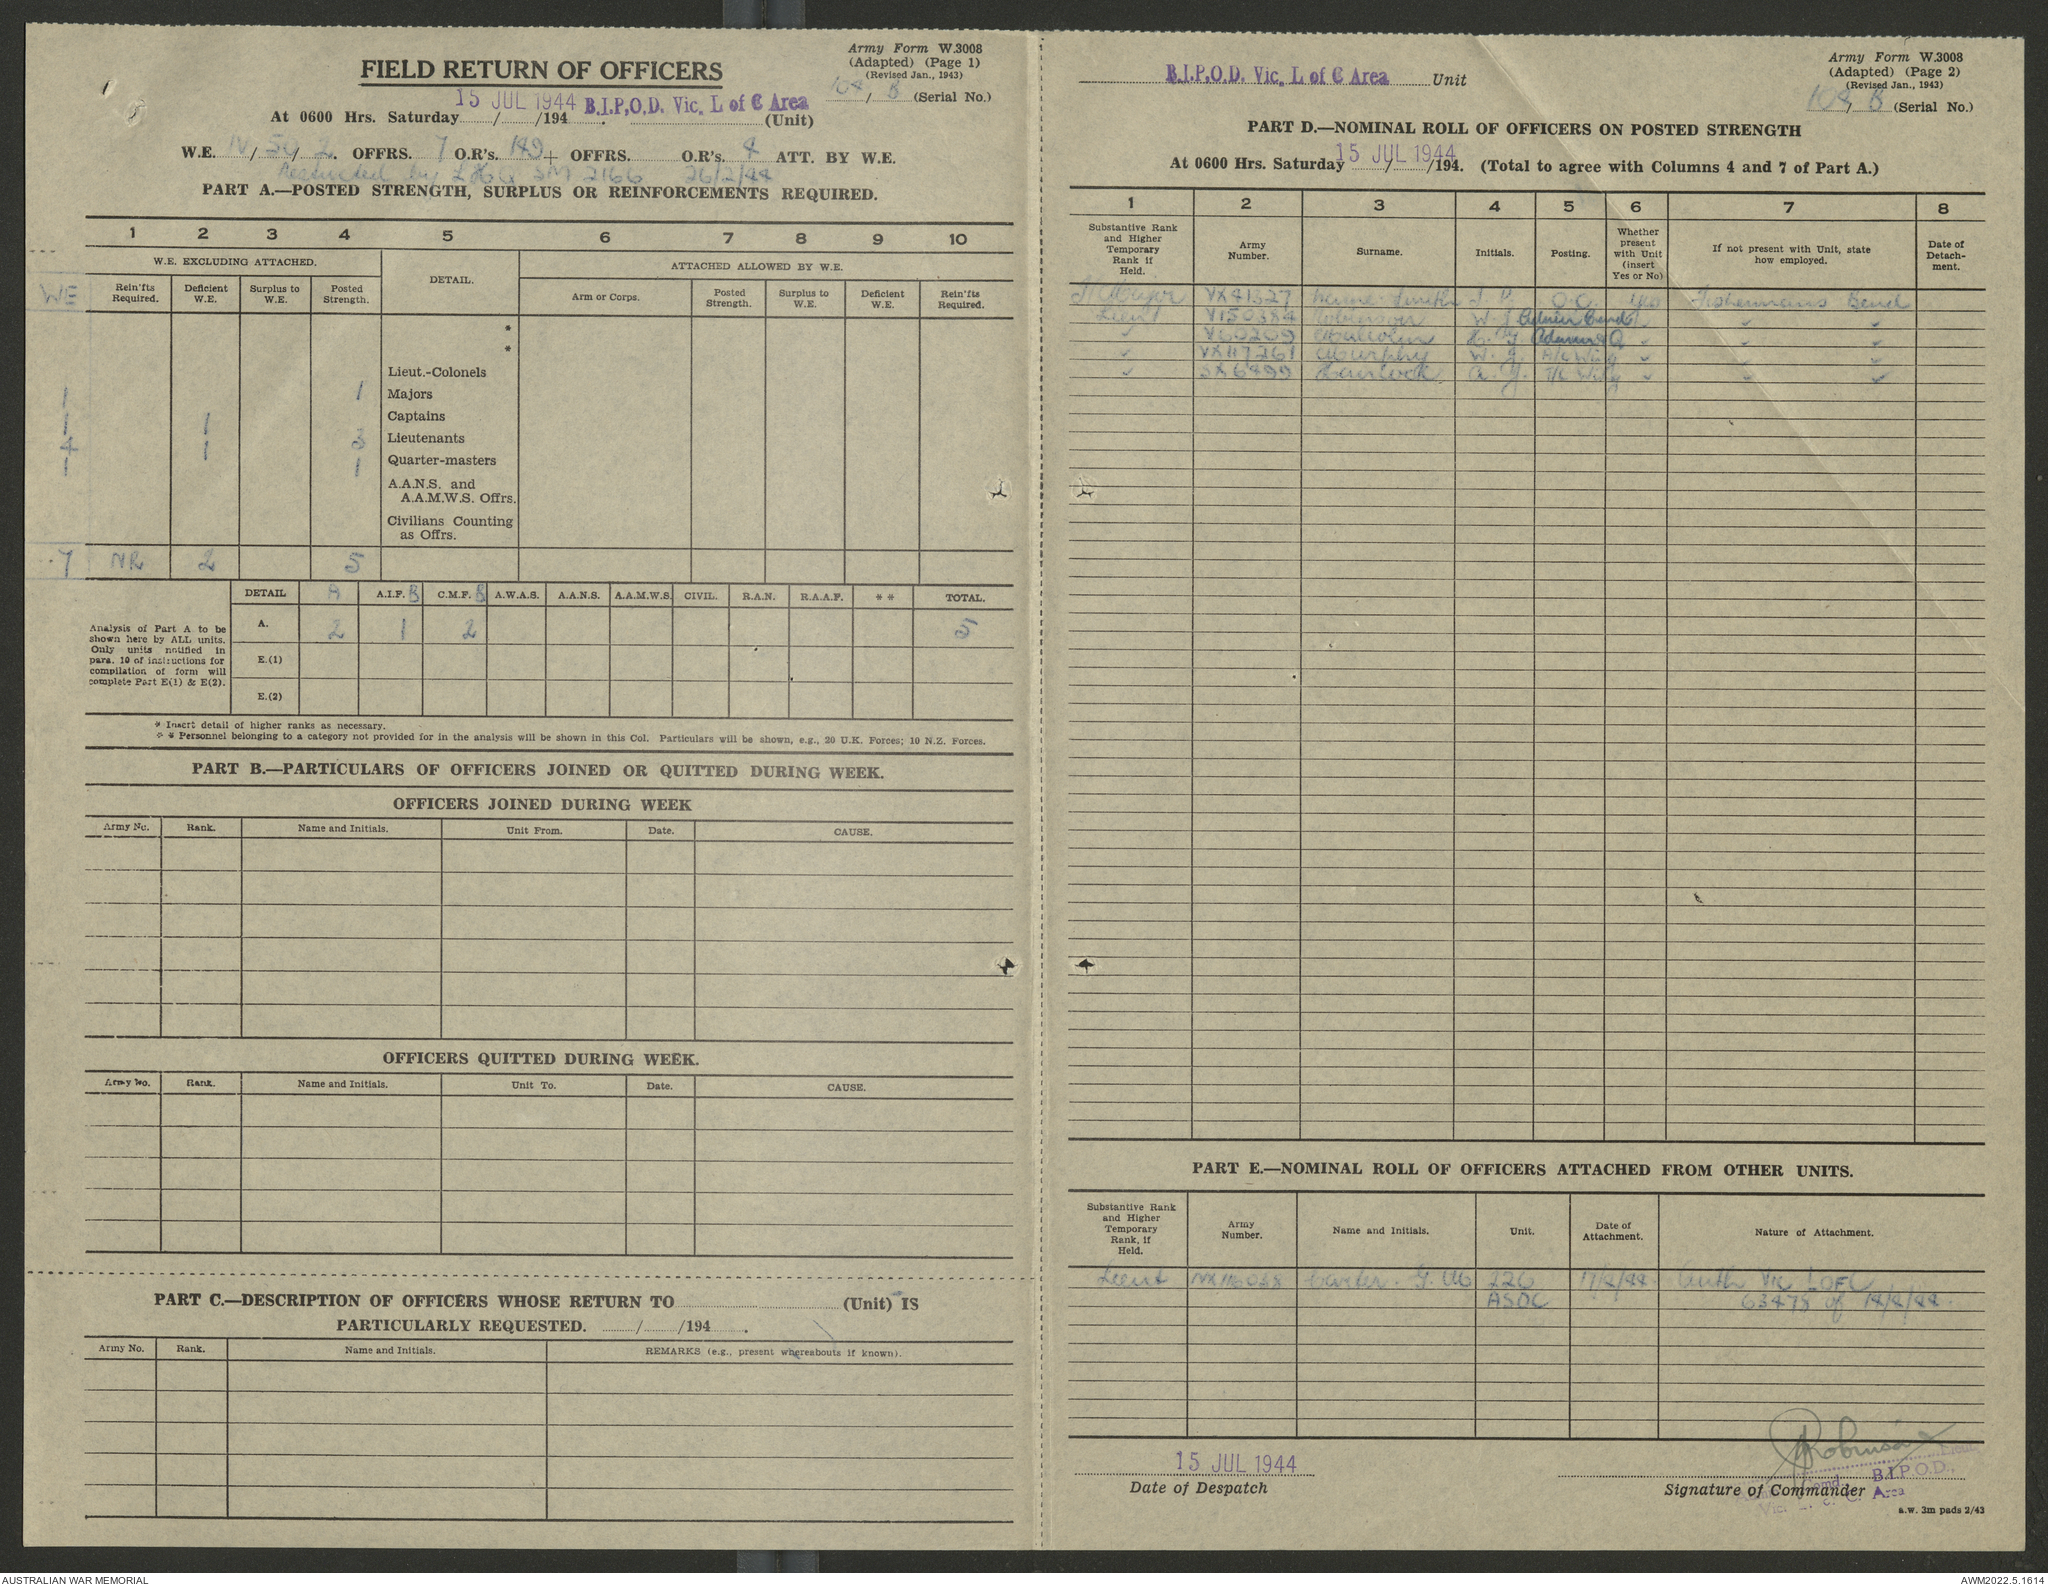 Army Form W.3008
(Adapted) (Page 1)
(Revised Jan., 1943)
104/ B (Serial No.)
FIELD RETURN OF OFFICERS
At 0600 Hrs. Saturday 15 JUL 1944 /194 . B.I.P.O.D. Vic. L of C Area (Unit)
W.E. IV / / 2. OFFRS. 7 O.R's. 149 + OFFRS. O.R's. 4 ATT. BY W.E.
Restricted by LHQ SM 2166 26/2/44
PART A.—POSTED STRENGTH, SURPLUS OR REINFORCEMENTS REQUIRED.
1 2 3 4 5 6 7 8 9 10
W.E. EXCLUDING ATTACHED. DETAIL. ATTACHED ALLOWED BY W.E.
WE Rein'fts Required. Deficient W.E. Surplus to W.E. Posted Strength. Arm or Corps. Posted Strength. Surplus to W.E. Deficient W.E. Rein'fts Required.
*
*
Lieut.-Colonels
1 1 Majors
1 1 Captains
4 1 3 Lieutenants
1 1 Quarter-masters
A.A.N.S. and
A.A.M.W.S. Offrs.
Civilians Counting
as Offrs.
7 NR 2 5
DETAIL A A.I.F. B C.M.F. B A.W.A.S. A.A.N.S. A.A.M.W.S. CIVIL. R.A.N. R.A.A.F. * * TOTAL.
Analysis of Part A to be
shown here by ALL units.
Only units notified in
para. 10 of instructions for
compilation of form will
complete Part E(1) & E(2).
A. 2 1 2 5
E.(1)
E.(2)
* Insert detail of higher ranks as necessary.
* * Personnel belonging to a category not provided for in the analysis will be shown in this Col. Particulars will be shown, e.g., 20 U.K. Forces; 10 N.Z. Forces.
PART B.—PARTICULARS OF OFFICERS JOINED OR QUITTED DURING WEEK.
OFFICERS JOINED DURING WEEK
Army No. Rank. Name and Initials. Unit From. Date. CAUSE.
OFFICERS QUITTED DURING WEEK.
Army No. Rank. Name and Initials. Unit To. Date. CAUSE.
PART C.—DESCRIPTION OF OFFICERS WHOSE RETURN TO (Unit) IS
PARTICULARLY REQUESTED. / /194 .
Army No. Rank. Name and Initials. REMARKS (e.g., present whereabouts if known).
B.I.P.O.D. Vic. L of C Area Unit
Army Form W.3008
(Adapted) (Page 2)
(Revised Jan., 1943)
104/ B (Serial No.)
PART D.—NOMINAL ROLL OF OFFICERS ON POSTED STRENGTH
At 0600 Hrs. Saturday 15 JUL 1944 / /194. (Total to agree with Columns 4 and 7 of Part A.)
1 2 3 4 5 6 7 8
Substantive Rank and Higher Temporary Rank if Held. Army Number. Surname. Initials. Posting. Whether present with Unit (insert Yes or No) If not present with Unit, state how employed. Date of Detachment.
Major VX81327 Smith J. O.C. Yes Fishermans Bend
Lieut V150384 Robinson W. J. Comd
" V60209 Malcolm H. G. Adam & Q " " "
" VX117261 Murphy W. J. A/C Wing " " "
" SX6499 A. G. T/C Wing " " "
PART E.—NOMINAL ROLL OF OFFICERS ATTACHED FROM OTHER UNITS.
Substantive Rank and Higher Temporary Rank, if Held. Army Number. Name and Initials. Unit. Date of Attachment. Nature of Attachment.
Lieut NX116048 Carter. G. M 226 17/4/44 Auth Vic LOFC
ASDC 63475 of 14/4/44.
15 JUL 1944
Date of Despatch
Robinson Lieut
Comd. B.I.P.O.D.
Signature of Commander
Vic. L of C. Area
a.w. 3m pads 2/43
AUSTRALIAN WAR MEMORIAL
AWM2022.5.1614